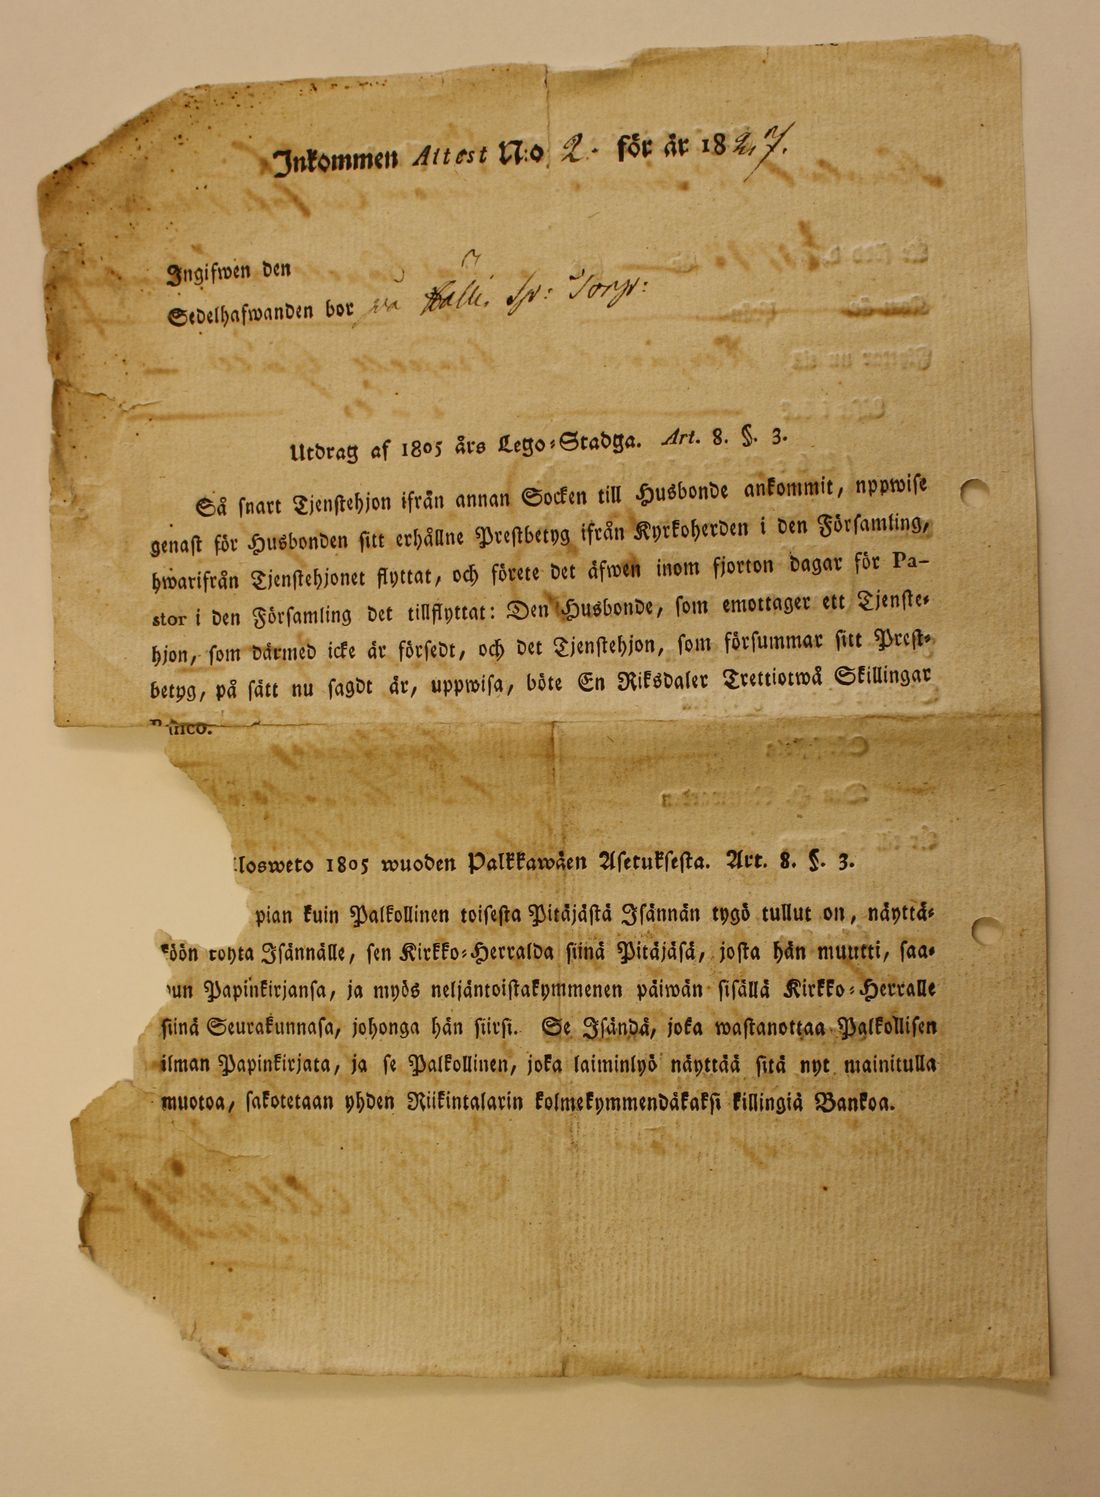 Inkommen Attest N:o 2. för år 1827.
Ingifwen den
Sedelhafwanden bor på
Utdrag af 1805 års Lego-Stadga. Art. 8. §. 3.
Så snart Tjenstehjon ifrån annan Socken till Husbonde ankommit, nppwise
genast för Husbonden sitt erhållne Prestbetyg ifrån Kyrkoherden i den Församling,
hwarifrån Tjenstehjonet flyttat, och förete det äfwen inom fjorton dagar för Pa-
stor i den Församling det tillflyttat: Den Husbonde, som emottager ett Tjenste-
hjon, som därmed icke är försedt, och det Tjenstehjon, som försummar sitt Prest-
betyg, på sätt nu sagdt är, uppwisa, böte En Riksdaler Trettiotwå Skillingar
Banco.
losweto 1805 wuoden Palkkawäen Asetuksesta. Art. 8. §. 3.
pian kuin Palkollinen toisesta Pitäjästä Isännän tygö tullut on, näyttä-
köön cohta Isännälle, sen Kirkko-Herralda siinä Pitäjäsä, josta hän muutti, saa-
dun Papinkirjansa, ja myös neljäntoistakymmenen päiwän sisällä Kirkko-Herralle
siinä Seurakunnasa, johonga hän siirsi. Se Isändä, joka wastanottaa Palkollisen
ilman Papinkirjata, ja se Palkollinen, joka laiminlyö näyttää sitä nyt mainitulla
muotoa, sakotetaan yhden Riikintalarin kolmekymmendäkaksi killingiä Bankoa.